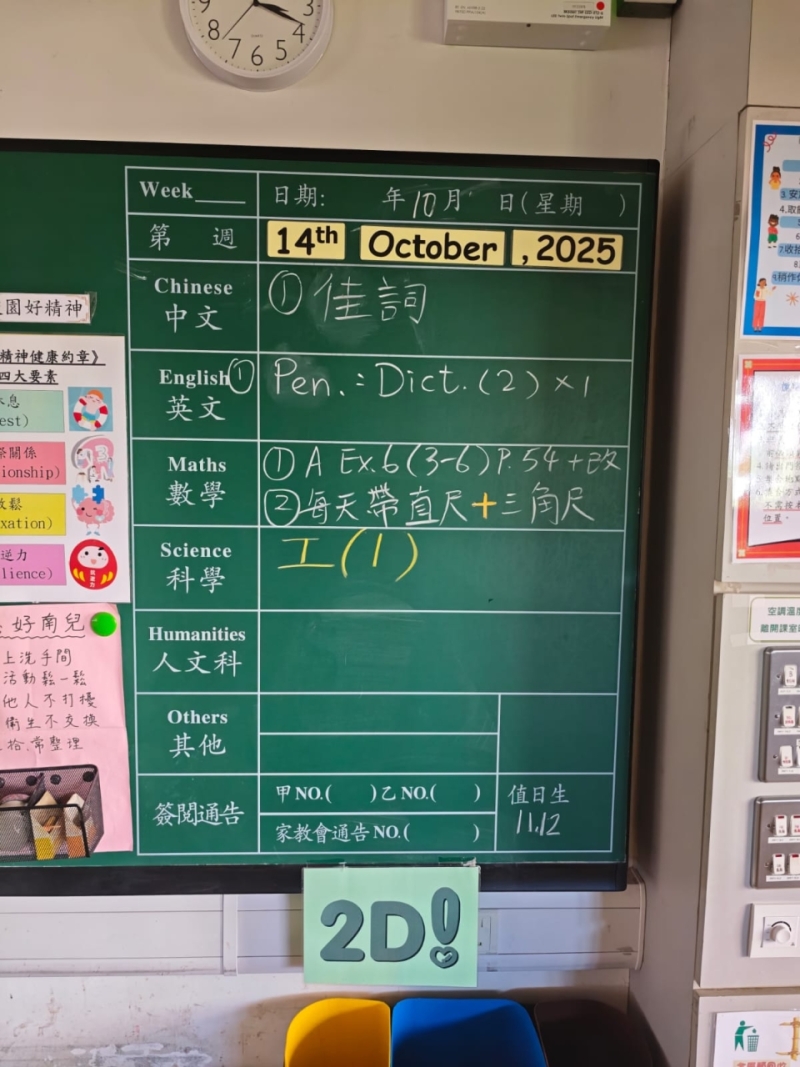 3
4
5
6
7
8
9
Week
日期: 年10月 日(星期 )
第 週
14th October , 2025
Chinese
中文
① 佳詞
English ①
英文
Pen. : Dict. (2) × 1
Maths
數學
① A Ex.6 (3-6) P.54 + 改
② 每天帶直尺 + 三角尺
Science
科學
工(1)
Humanities
人文科
Others
其他
簽閱通告
甲NO.( ) 乙NO.( )
家教會通告NO.( )
值日生
11.12
2D!
園好精神
精神健康約章》
四大要素
息
est)
關係
ionship)
鬆
xation)
逆力
lience)
好南兒
上洗手間
活動鬆一鬆
他人不打擾
衛生不交換
拾.常整理
空調溫度
離開課室
位置。